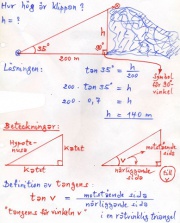 Hur hög är klippan ?
h = ?
h
35°
90°
200 m
Lösningen:
tan 35° = h / 200
200 · tan 35° = h
200 · 0,7 = h
h = 140 m
Symbol
för 90°
vinkel
Beteckningar:
Hypote-
nusa
katet
katet
motstående
sida
v
närliggande sida
till
v
Definition av tangens:
tan v = motstående sida / närliggande sida
"tangens för vinkeln v"
i en rätvinklig triangel